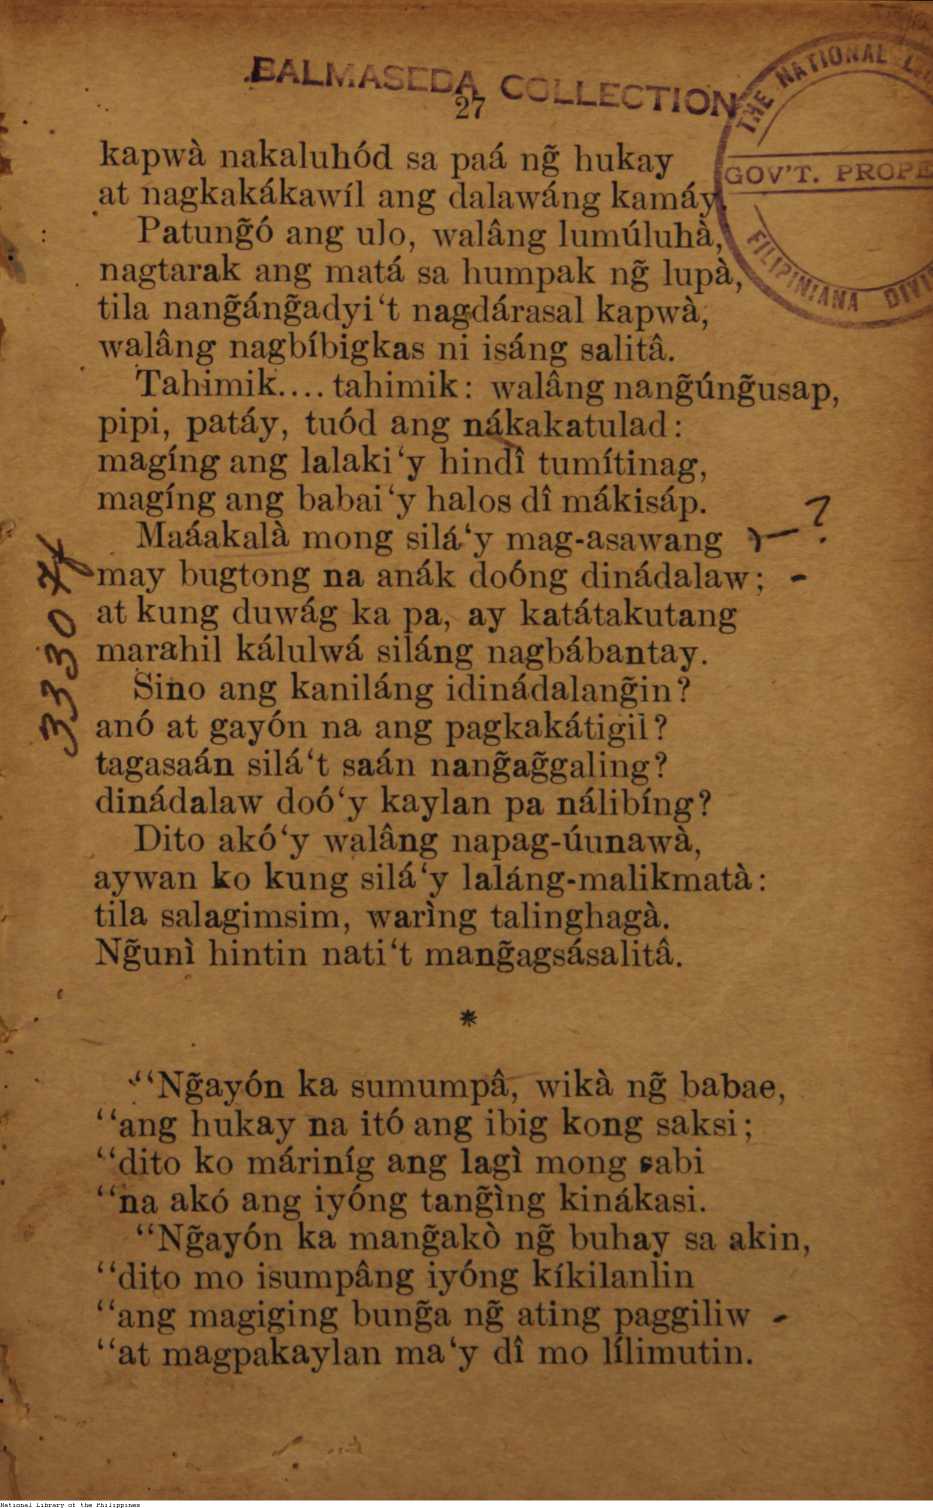 BALMASEDA COLLECTION
27
THE NATIONAL
GOV'T. PROPE
FILIPINIANA DIVI
kapwà nakaluhód sa paá ng̃ hukay
at nagkakákawíl ang dalawáng kamáy.
Patung̃ó ang ulo, walâng lumúluhà,
nagtarak ang matá sa humpak ng̃ lupà,
tila nang̃áng̃adyi‘t nagdárasal kapwà,
walâng nagbíbigkas ni isáng salitâ.
Tahimik.... tahimik: walâng nang̃úng̃usap,
pipi, patáy, tuód ang nákakatulad:
magíng ang lalaki‘y hindî tumítinag,
magíng ang babai‘y halos dî mákisáp.
Maáakalà mong silá‘y mag-asawang
may bugtong na anák doóng dinádalaw;
at kung duwág ka pa, ay katátakutang
marahil kálulwá siláng nagbábantay.
Sino ang kaniláng idinádalang̃in?
anó at gayón na ang pagkakátigil?
tagasaán silá‘t saán nang̃ag̃galing?
dinádalaw doó‘y kaylan pa nálibíng?
Dito akó‘y walâng napag-úunawà,
aywan ko kung silá‘y laláng-malikmatà:
tila salagimsim, warìng talinghagà.
Ng̃unì hintin nati‘t mang̃agsásalitâ.
*
‘‘Ng̃ayón ka sumumpâ, wikà ng̃ babae,
‘‘ang hukay na itó ang ibig kong saksi;
‘‘dito ko máriníg ang lagì mong sabi
‘‘na akó ang iyóng tang̃ìng kinákasi.
‘‘Ng̃ayón ka mang̃akò ng̃ buhay sa akin,
‘‘dito mo isumpâng iyóng kíkilanlin
‘‘ang magiging bung̃a ng̃ ating paggiliw
‘‘at magpakaylan ma‘y dî mo lílimutin.
?
3330
National Library of the Philippines